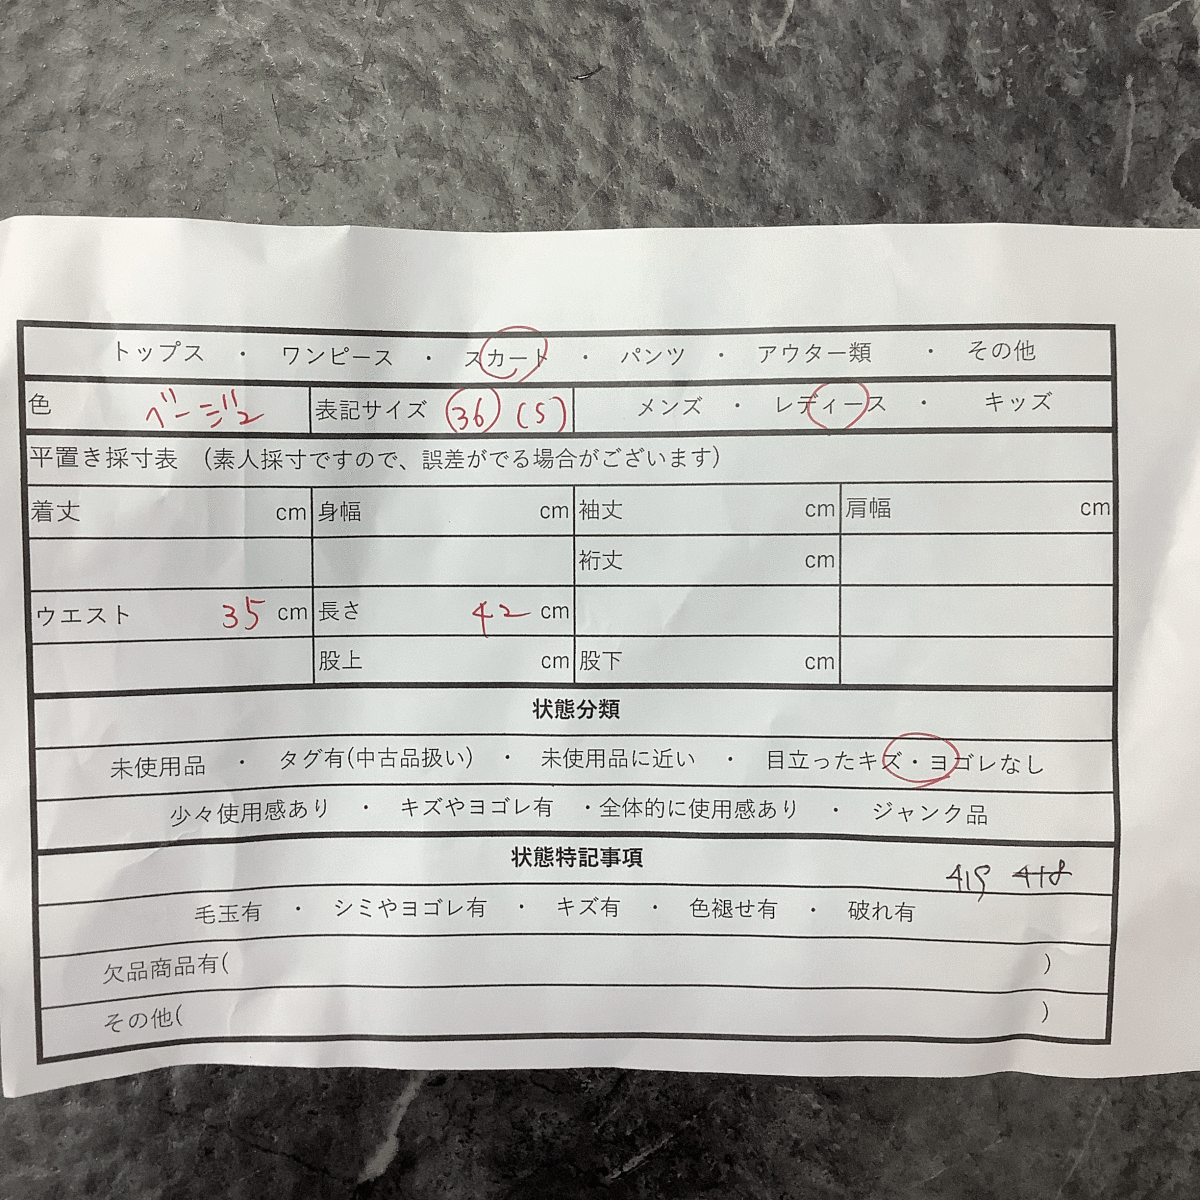 トップス ・ ワンピース ・ スカート ・ パンツ ・ アウター類 ・ その他
色 ベージュ 表記サイズ 36 (S) メンズ ・ レディース ・ キッズ
平置き採寸表 （素人採寸ですので、誤差がでる場合がございます）
着丈 cm 身幅 cm 袖丈 cm 肩幅 cm
裄丈 cm
ウエスト 35 cm 長さ 42 cm
股上 cm 股下 cm
状態分類
未使用品 ・ タグ有(中古品扱い) ・ 未使用品に近い ・ 目立ったキズ・ヨゴレなし
少々使用感あり ・ キズやヨゴレ有 ・全体的に使用感あり ・ ジャンク品
状態特記事項
419 418
毛玉有 ・ シミやヨゴレ有 ・ キズ有 ・ 色褪せ有 ・ 破れ有
欠品商品有( )
その他( )